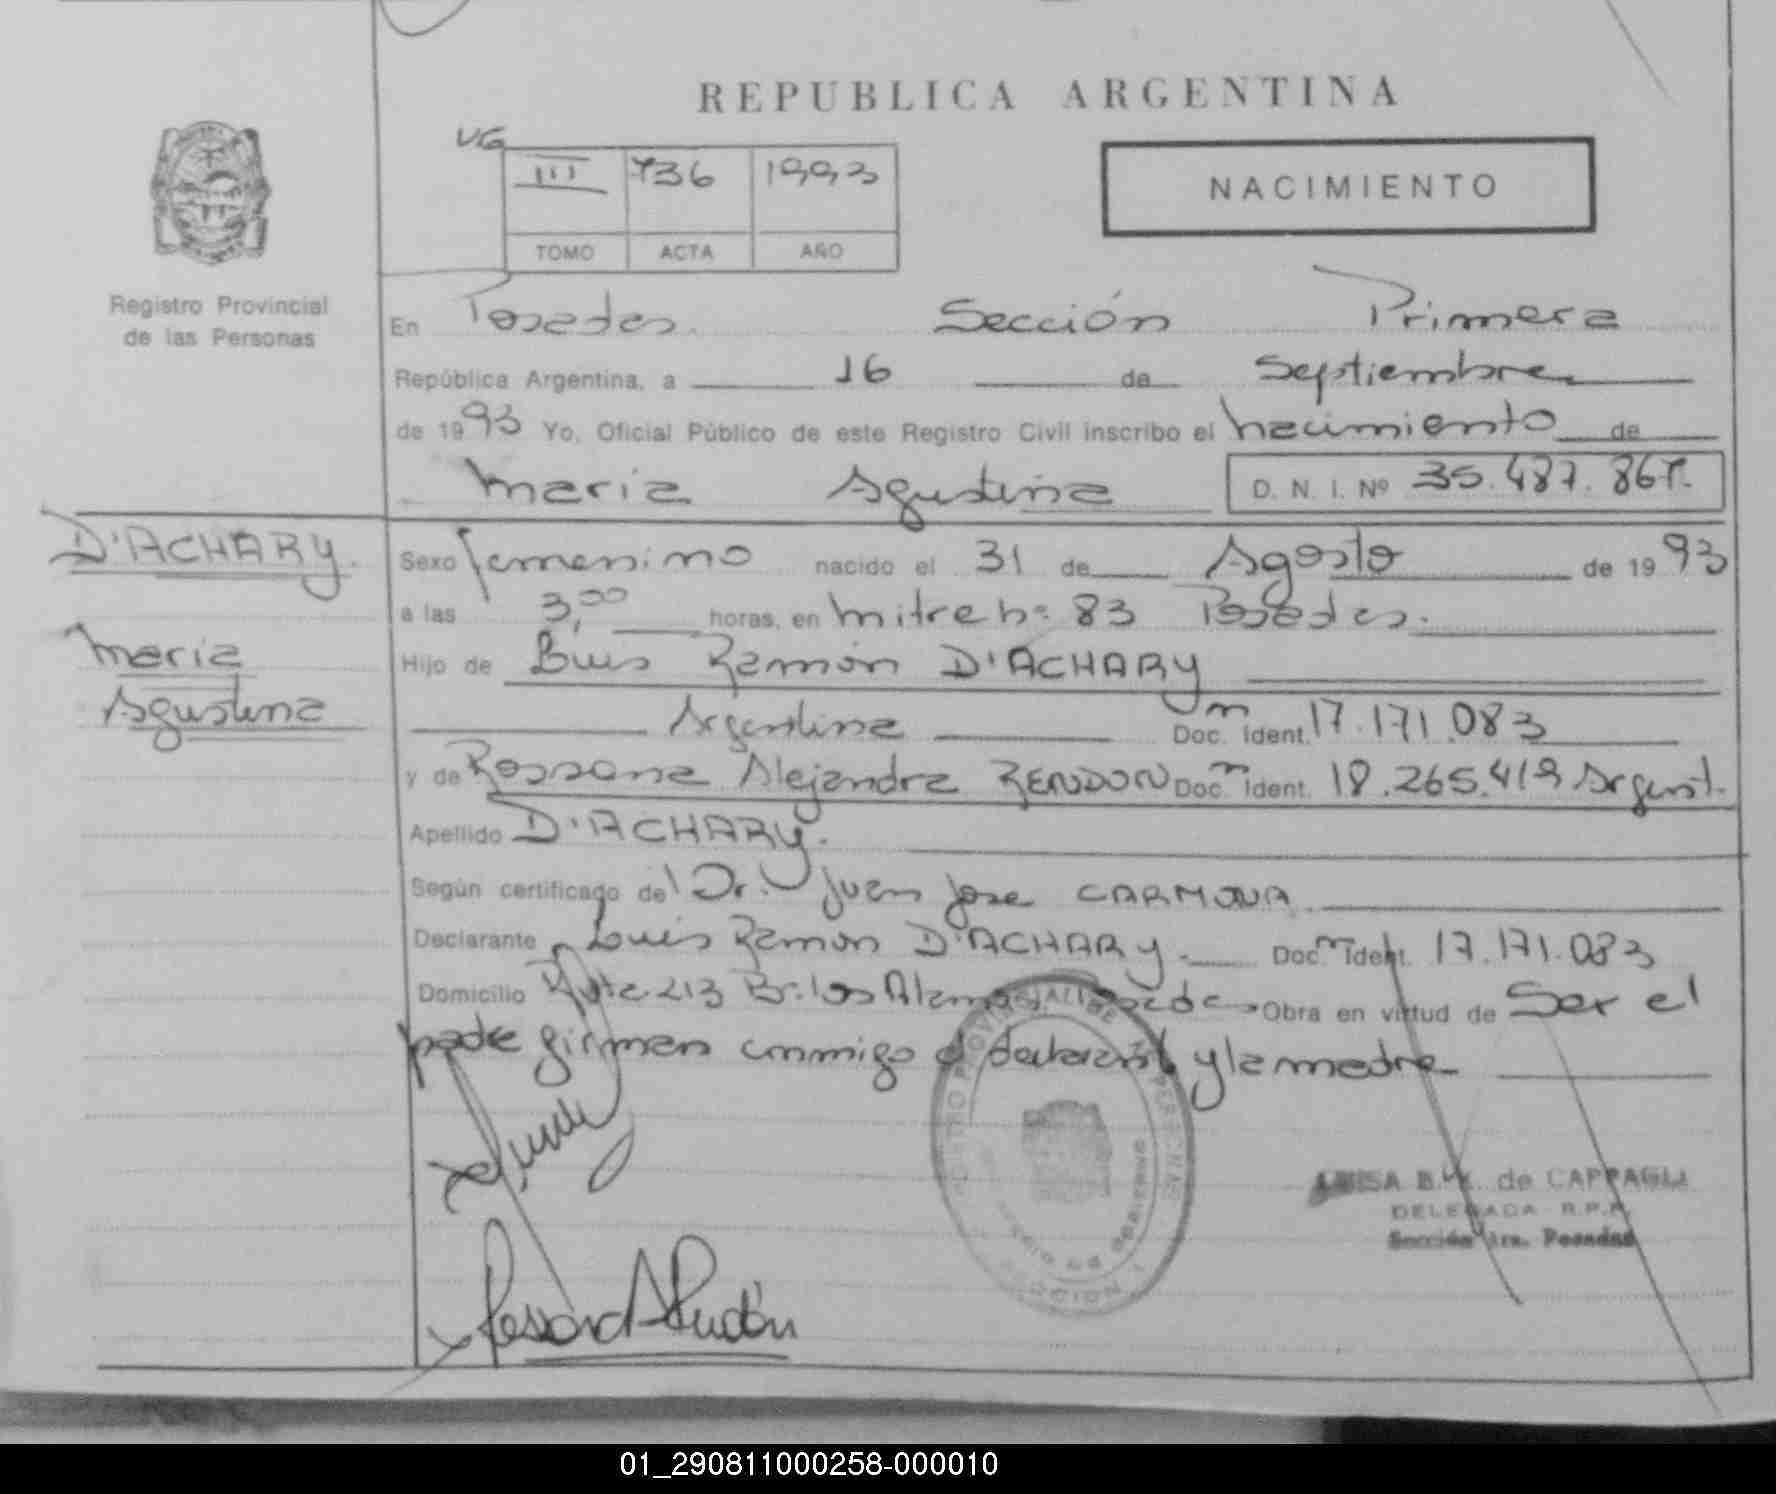 REPUBLICA ARGENTINA
VG
III 736 1993
TOMO ACTA AÑO
NACIMIENTO
Registro Provincial
de las Personas
En Posadas Sección Primera
República Argentina, a 16 de Septiembre
de 1993 Yo, Oficial Público de este Registro Civil inscribo el nacimiento de
Maria Agustina D. N. I. Nº 35.487.867
D'ACHARY.
Maria
Agustina
Sexo femenino nacido el 31 de Agosto de 1993
a las 3,00 horas, en Mitre nº 83 Posadas.
Hijo de Luis Ramón D'ACHARY
Argentina Doc. Ident. 17.171.083
y de Rossana Alejandra RENDON Doc. Ident. 18.265.419 Argent.
Apellido D'ACHARY.
Según certificado del Dr. Juan Jose CARMONA
Declarante Luis Ramon D'ACHARY. Doc. Ident. 17.171.083
Domicilio Ruta 213 Bº los Alamos Posadas Obra en virtud de Ser el
padre firman conmigo el declarante y la madre
REGISTRO PROVINCIAL DE LAS PERSONAS
MINISTERIO DE GOBIERNO
SECCION 1
LUISA B. de CAPPAGLI
DELEGADA R.P.P.
Sección 1ra. Posadas
01_290811000258-000010